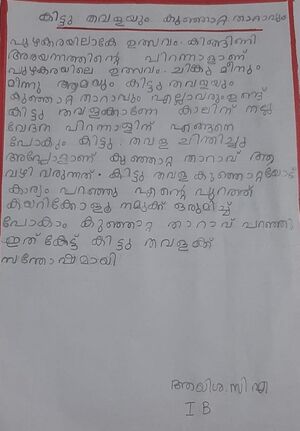 കിട്ടു തവളയും കുഞ്ഞാറ്റ താറാവും
പുഴകരയിലാകേ ഉത്സവം. കിങ്ങിണി
അരയന്നത്തിന്റെ പിറന്നാളാണ്
പുഴകരയിലെ ഉത്സവം. ചിക്കു മീനും
മിന്നു ആമയും കിട്ടു തവളയും
കുഞ്ഞാറ്റ താറാവും എല്ലാവരുമുണ്ട്
കിട്ടു തവളക്കാണേ കാലിന് നല്ല
വേദന പിറന്നാളിന് എങ്ങനെ
പോകും. കിട്ടു തവള ചിന്തിച്ചു
അപ്പോളാണ് കുഞ്ഞാറ്റ താറാവ് ആ
വഴി വരുന്നത്. കിട്ടു തവള കുഞ്ഞാറ്റയോട്
കാര്യം പറഞ്ഞു എന്റെ പുറത്ത്
കയറിക്കോളൂ നമുക്ക് ഒരുമിച്ച്
പോകാം കുഞ്ഞാറ്റ താറാവ് പറഞ്ഞു
ഇത് കേട്ട് കിട്ടു തവളക്ക്
സന്തോഷമായി
ആയിശ. സി എ
I B